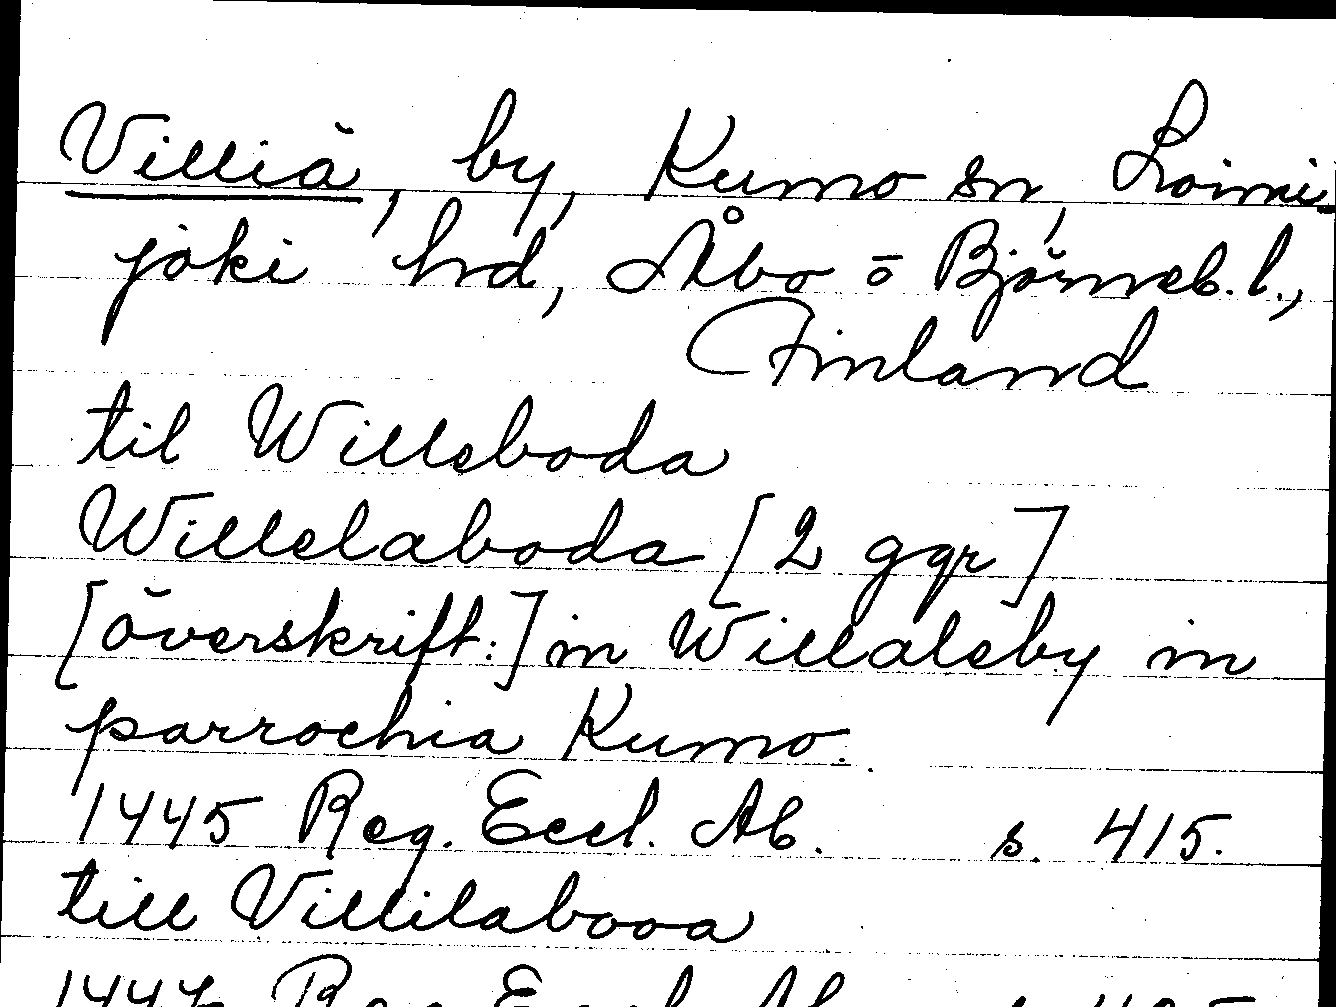 Villiä, by, Kumo sn, Loimi-
joki hd, Åbo o Björneb. l.,
Finland
til Willeboda
Willelaboda [2 ggr]
[överskrift:] in Willaleby in
parrochia Kumo.
1445 Reg. Eccl. Ab. s. 415.
till Villilabooa
Reg. Eccl. Ab.